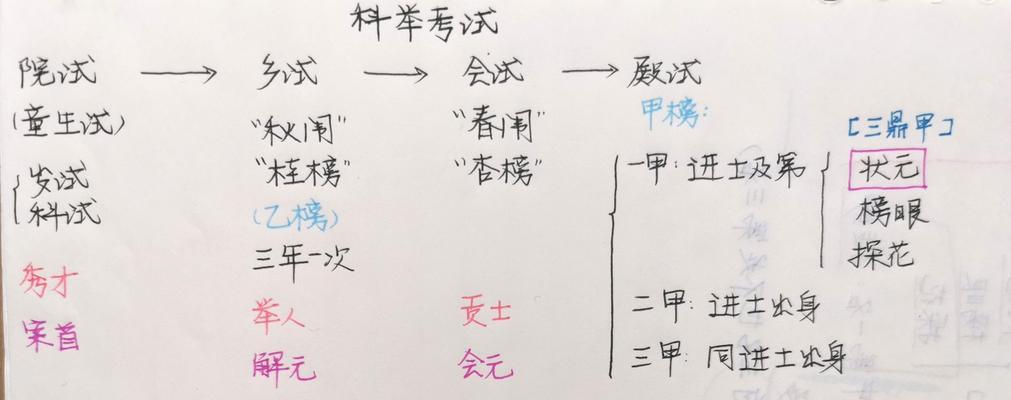 科举考试
院试 → 乡试 → 会试 → 殿试
(童生试)
岁试
科试
秀才
案首
"秋闱"
"桂榜"
(乙榜)
三年一次
举人
解元
"春闱"
"杏榜"
贡士
会元
甲榜:
一甲: 进士及第
[三鼎甲]
状元
榜眼
探花
二甲: 进士出身
三甲: 同进士出身